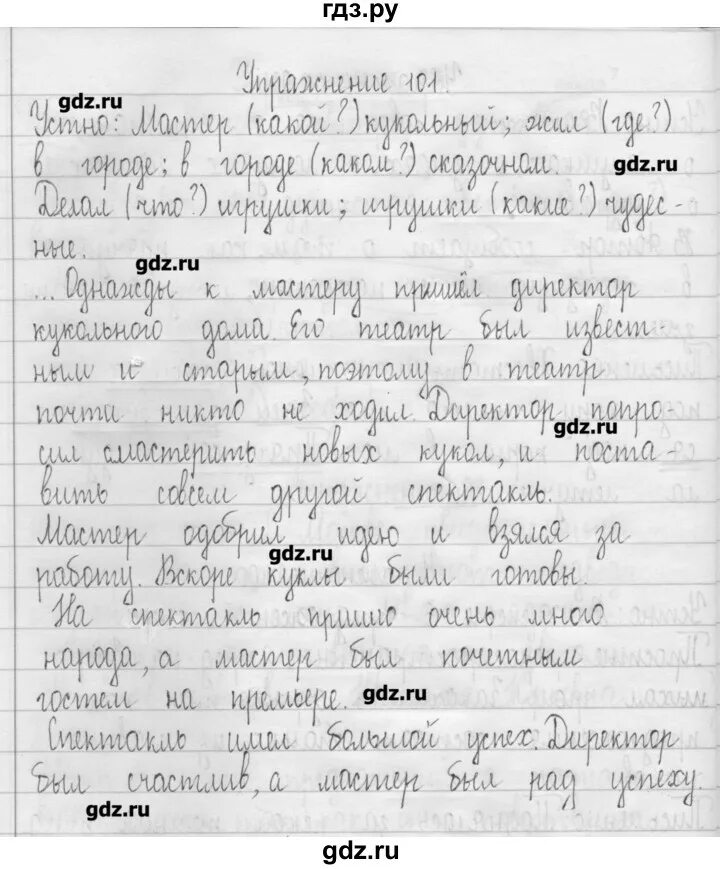 гдз.ру
Упражнение 101.
gdz.ru
Устно: Мастер (какой?) кукольный; жил (где?)
в городе; в городе (каком?) сказочном.
gdz.ru
Делал (что?) игрушки; игрушки (какие?) чудес-
ные.
gdz.ru
... Однажды к мастеру пришёл директор
кукольного дома. Его театр был извест-
ным и старым, поэтому в театр
почти никто не ходил. Директор попро-
gdz.ru
сил смастерить новых кукол, и поста-
вить совсем другой спектакль.
Мастер одобрил идею и взялся за
gdz.ru
работу. Вскоре куклы были готовы.
На спектакль пришло очень много
народа, а мастер был почетным
гостем на премьере.
gdz.ru
Спектакль имел большой успех. Директор
был счастлив, а мастер был рад успеху.
gdz.ru
gdz.ru